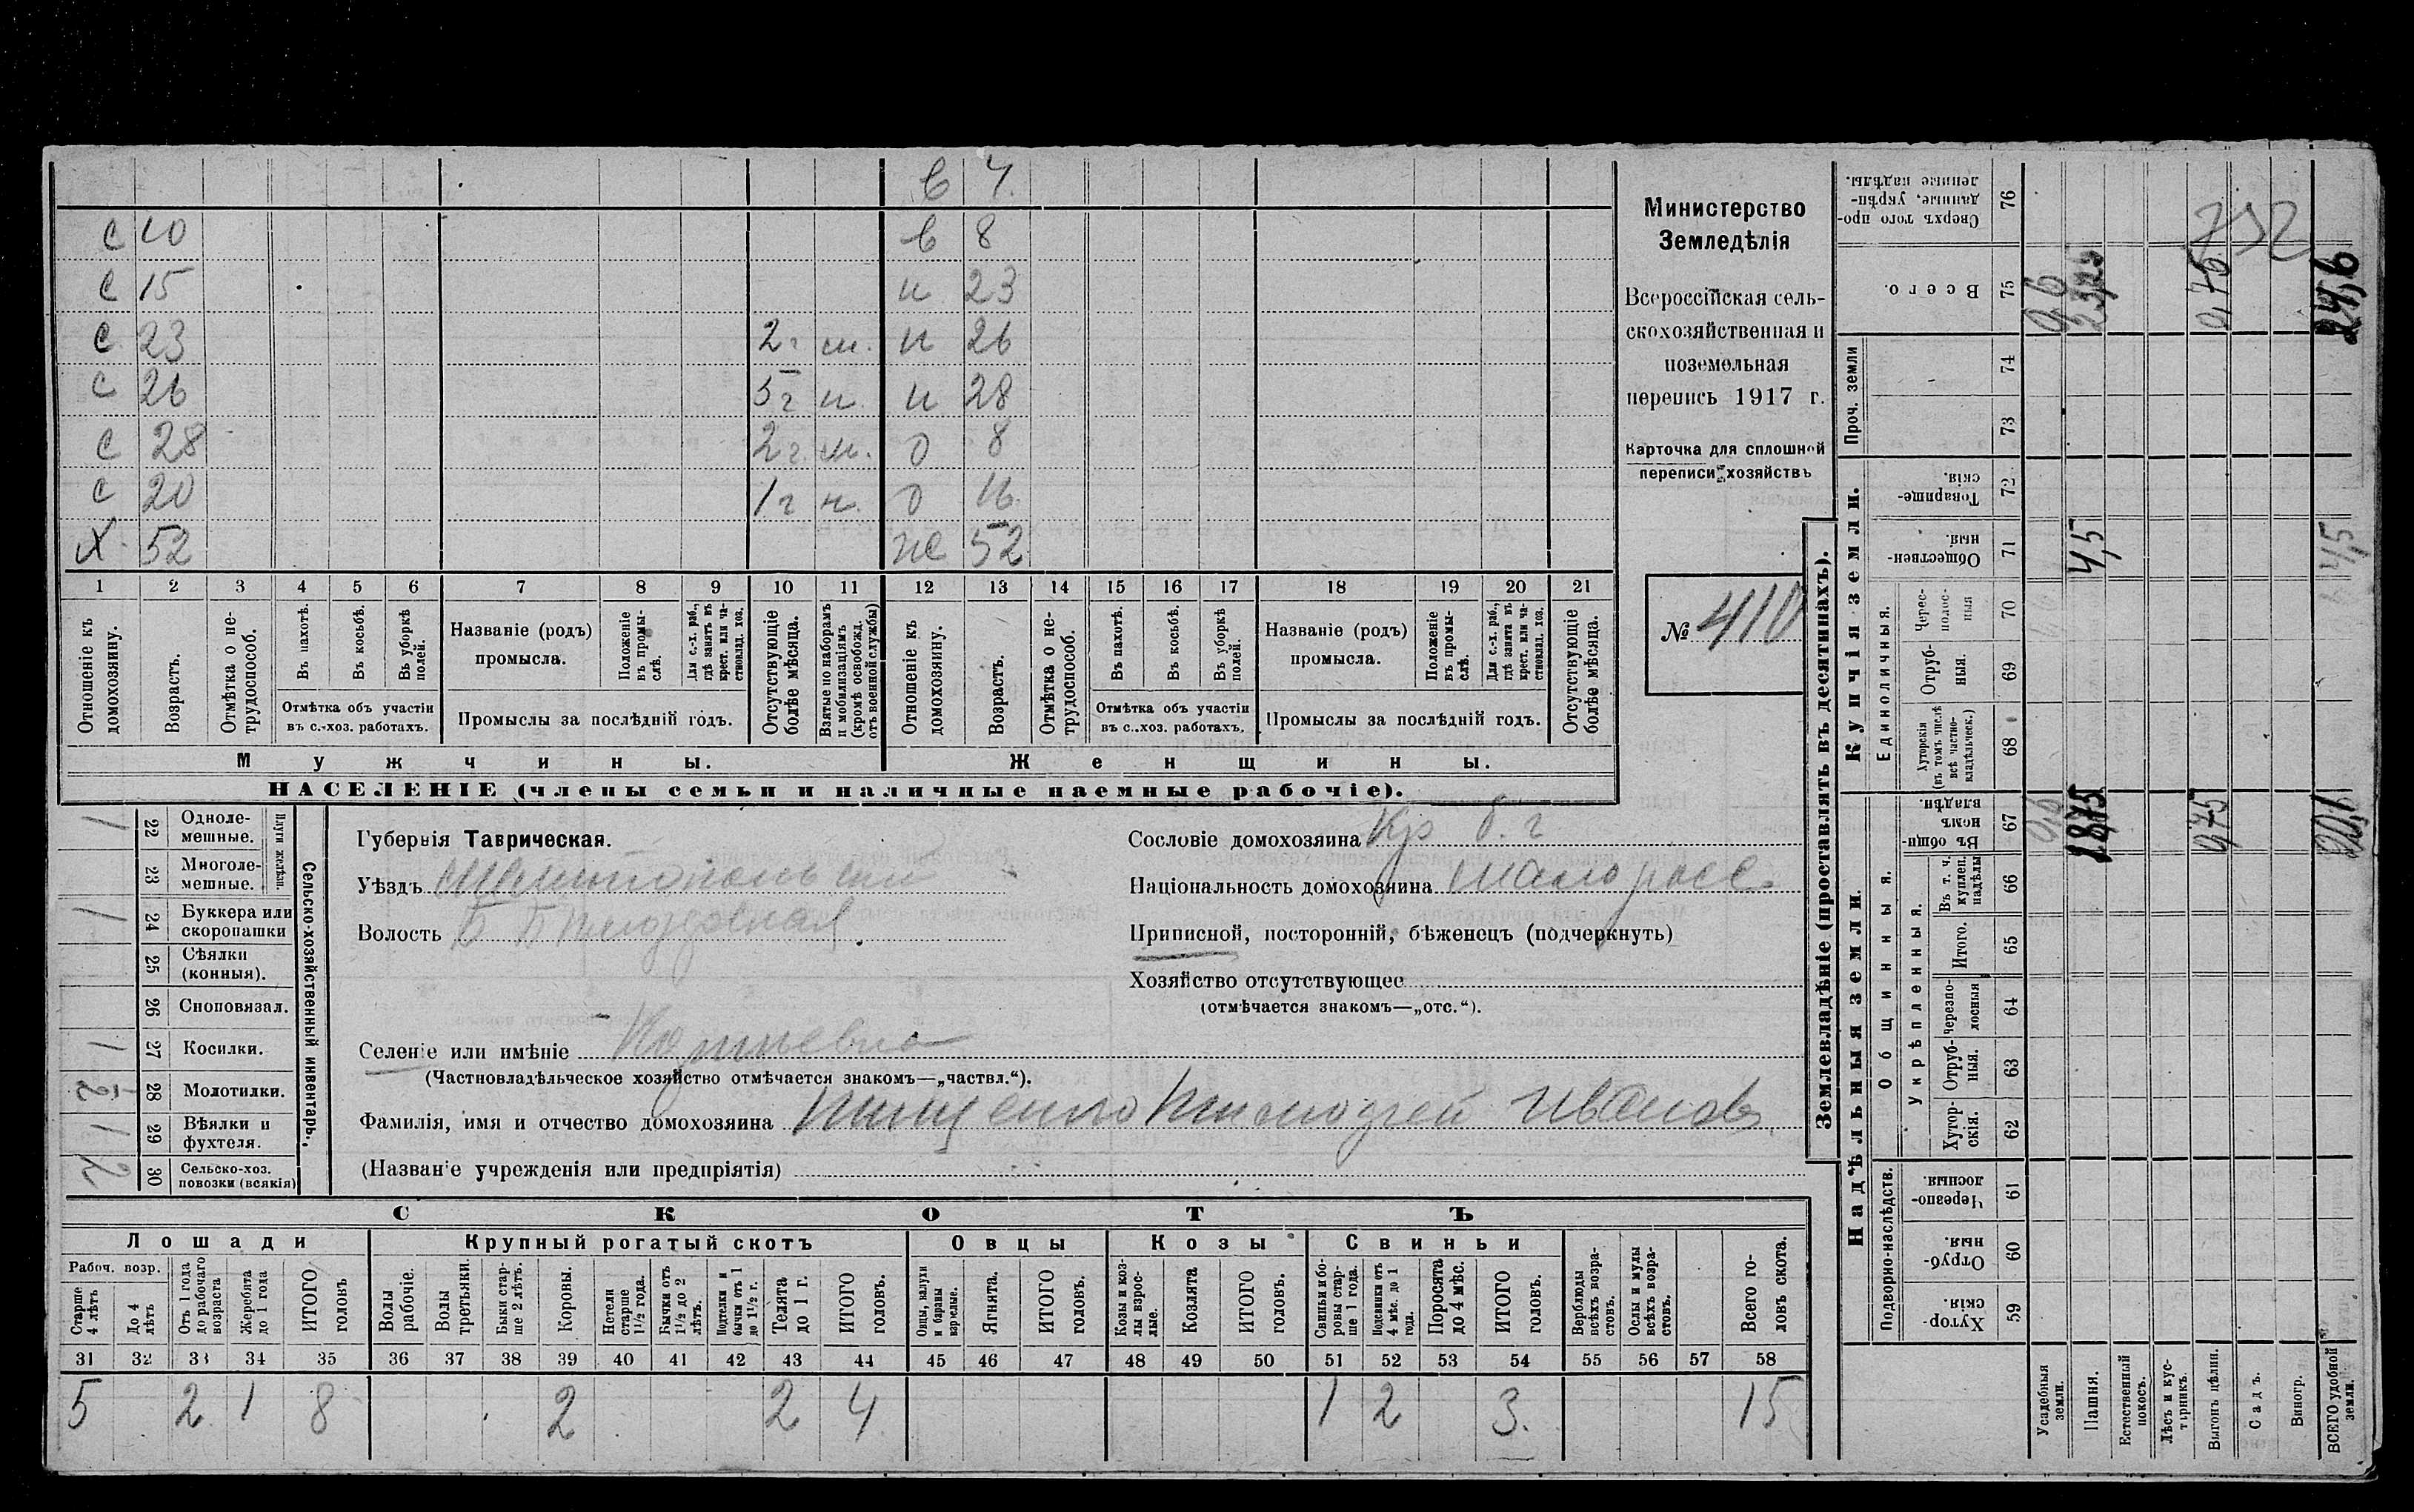 в 4
с 10 в 8
с 15 н 23
с 23 2 г м. н 26
с 26 3 г н. н 28
с 28 2 г. м. о 8
с 20 1 г н. о 16
х 52 же 52
1 2 3 4 5 6 7 8 9 10 11 12 13 14 15 16 17 18 19 20 21
Отношеніе къ домохозяину.
Возрастъ.
Отмѣтка о не-трудоспособ.
Въ пахотѣ.
Въ косьбѣ.
Въ уборкѣ полей.
Отмѣтка объ участіи
въ с.-хоз. работахъ.
Названіе (родъ)
промысла.
Положеніе въ промы-слѣ.
Для с.-х. раб., гдѣ занятъ въ крест. или ча-стновлад. хоз.
Промыслы за послѣдній годъ.
Отсутствующіе болѣе мѣсяца.
Взятые по наборамъ и мобилизаціямъ (кромѣ освобожд. отъ военной службы)
Отношеніе къ домохозяину.
Возрастъ.
Отмѣтка о не-трудоспособ.
Въ пахотѣ.
Въ косьбѣ.
Въ уборкѣ полей.
Отмѣтка объ участіи
въ с.-хоз. работахъ.
Названіе (родъ)
промысла.
Положеніе въ промы-слѣ.
Для с.-х. раб., гдѣ занята въ крест. или ча-стновлад. хоз.
Промыслы за послѣдній годъ.
Отсутствующіе болѣе мѣсяца.
Мужчины. Женщины.
НАСЕЛЕНІЕ (члены семьи и наличные наемные рабочіе).
Министерство
Земледѣлія
Всероссійская сель-
скохозяйственная и
поземельная
перепись 1917 г.
Карточка для сплошной
переписи хозяйствъ
№ 410
Сельско-хозяйственный инвентарь.
Плуги желѣзн.
1 22 Однолемешные.
23 Многолемешные.
1 24 Буккера или скоропашки
25 Сѣялки (конныя).
26 Сноповязал.
1 27 Косилки.
28 Молотилки.
1 29 Вѣялки и фухтеля.
2 30 Сельско-хоз. повозки (всякія)
Губернія Таврическая.
Уѣздъ
Волость
Селеніе или имѣніе
(Частновладѣльческое хозяйство отмѣчается знакомъ—„частвл.“).
Фамилія, имя и отчество домохозяина
(Названіе учрежденія или предпріятія)
Сословіе домохозяина Кр
Національность домохозяина малоросс.
Приписной, посторонній, бѣженецъ (подчеркнуть)
Хозяйство отсутствующее
(отмѣчается знакомъ—„отс.“).
СКОТЪ
Лошади Крупный рогатый скотъ Овцы Козы Свиньи
Рабоч. возр.
Старше 4 лѣтъ
До 4 лѣтъ
Отъ 1 года до рабочаго возраста
Жеребята до 1 года
ИТОГО головъ
Волы рабочіе.
Волы третьяки.
Быки стар-ше 2 лѣтъ.
Коровы.
Нетели старше 1½ года.
Бычки отъ 1½ до 2 лѣтъ.
Подтелки и бычки отъ 1 до 1½ г.
Телята до 1 г.
ИТОГО головъ.
Овцы, валухи и бараны взрослые.
Ягнята.
ИТОГО головъ.
Козы и коз-лы взрос-лые.
Козлята
ИТОГО головъ.
Свиньи и бо-ровы стар-ше 1 года.
Подсвинки отъ 4 мѣс. до 1 года.
Поросята до 4 мѣс.
ИТОГО головъ.
Верблюды всѣхъ возра-стовъ.
Ослы и мулы всѣхъ возра-стовъ.
Всего го-ловъ скота.
31 32 33 34 35 36 37 38 39 40 41 42 43 44 45 46 47 48 49 50 51 52 53 54 55 56 57 58
5 2 1 8 2 2 4 1 2 3. 15
Землевладѣніе (проставлять въ десятинахъ).
Надѣльныя земли. Купчія земли. Проч. земли
Подворно-наслѣдств. Общинныя. Укрѣпленныя. Единоличныя.
59 Хутор-скія.
60 Отруб-ныя.
61 Черезпо-лосныя.
62 Хутор-скія.
63 Отруб-ныя.
64 Черезпо-лосныя
65 Итого.
66 Въ т. ч. куплен. надѣлы
67 Въ общи-номъ владѣн.
68 Хуторскія (въ томъ числѣ всѣ частно-владѣльческ.)
69 Отруб-ныя.
70 Черес-полос-ныя
71 Обществен-ныя.
72 Товарище-скія.
73
74
75 Всего.
76 Сверхъ того про-данные, укрѣп-ленные надѣлы.
Усадебныя земли. 0,6 0,6
Пашня. 18,75 4,5
Естественный покосъ.
Лѣсъ и кус-тарникъ.
Выгонъ цѣлин. 0,75 0,75
Садъ.
Виногр.
ВСЕГО удобной земли. 20,1 4,5 24,6